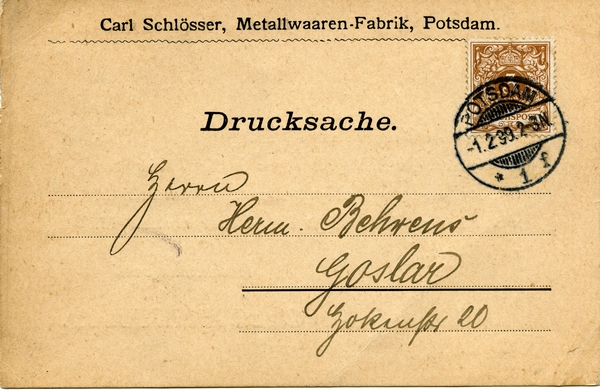 Carl Schlösser, Metallwaaren-Fabrik, Potsdam.
POTSDAM
-1.2.99.2-3N.
* 1 f
Drucksache.
Herrn
Herm. Behrens
Goslar
20